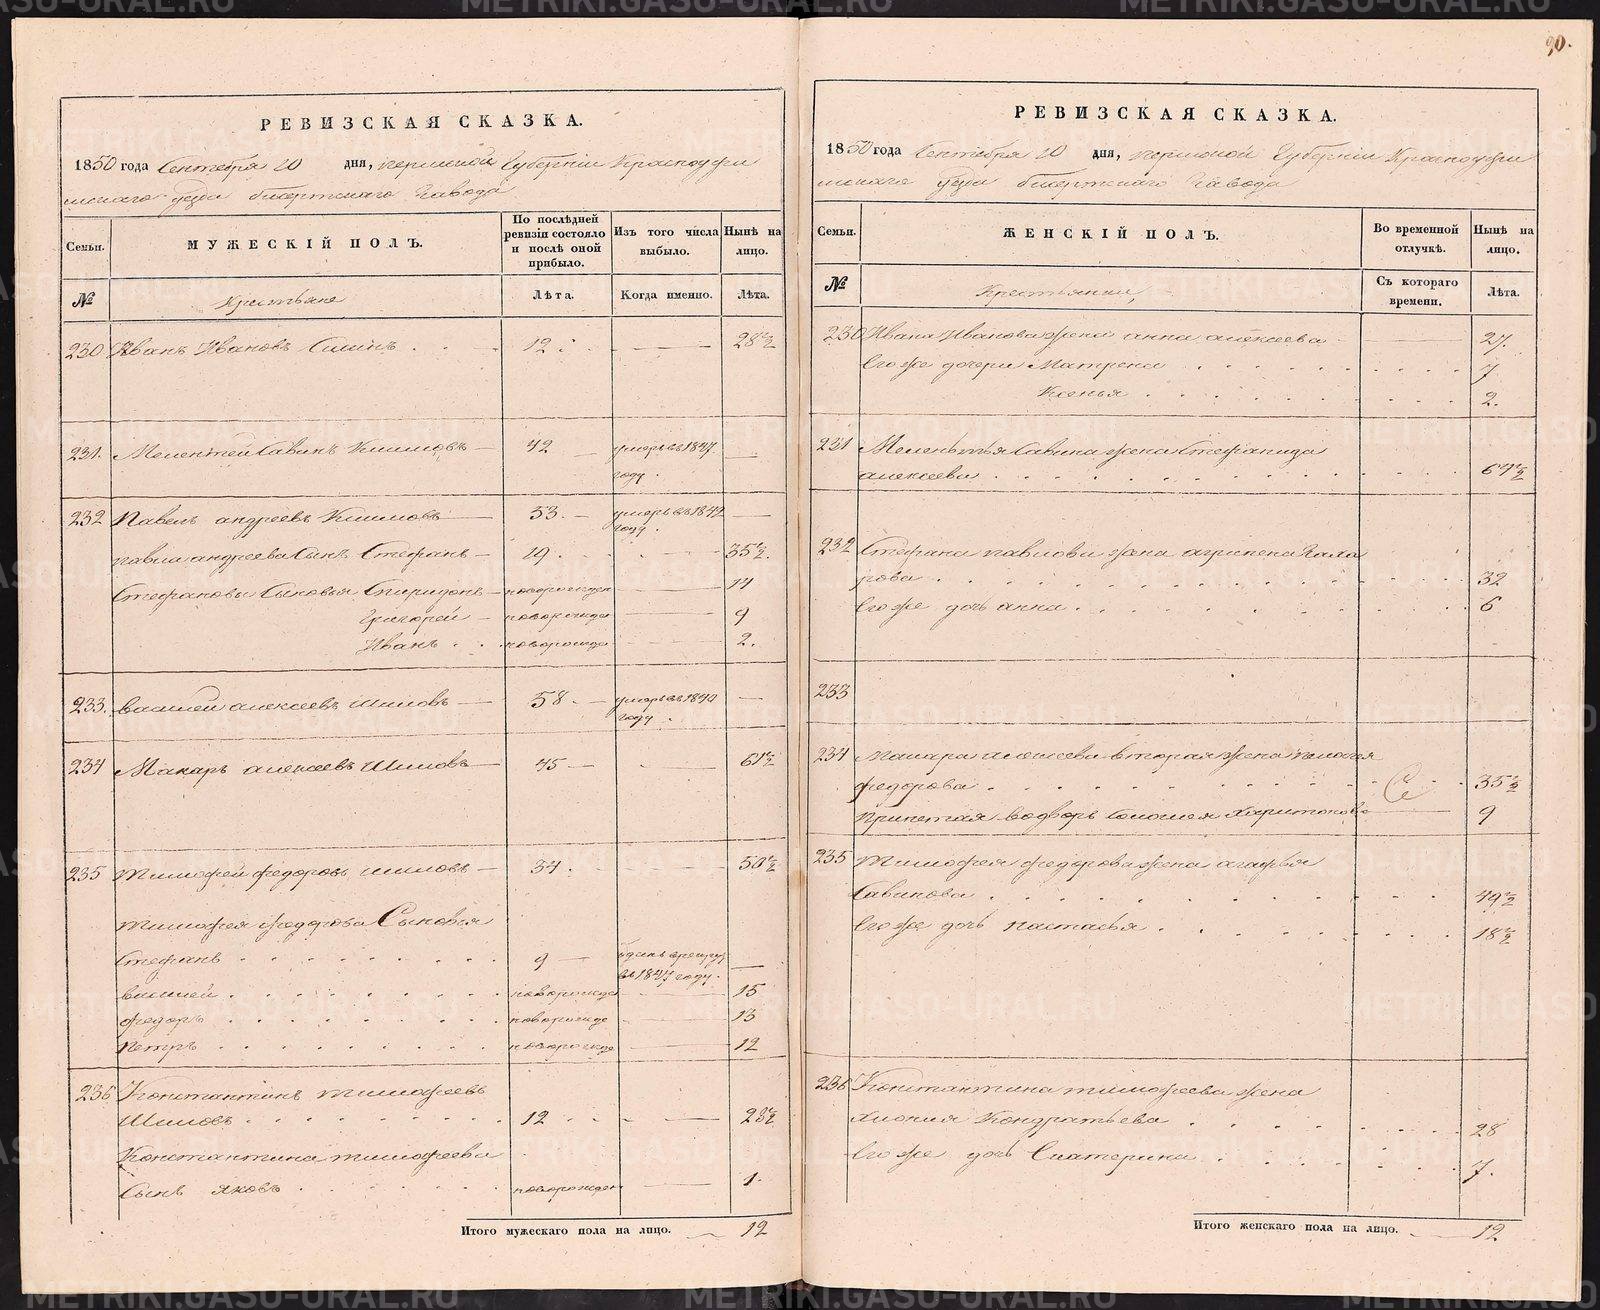 90.
РЕВИЗСКАЯ СКАЗКА.
1850 года Сентября 20 дня, Пермской Губерніи Красноуфи
мскаго уезда бисертскаго Завода
Семьи.
МУЖЕСКІЙ ПОЛЪ.
По послѣдней ревизіи состояло и послѣ оной прибыло.
Изъ того числа выбыло.
Нынѣ на лицо.
№
Крестьяне
Лѣта.
Когда именно.
Лѣта.
230 Иванъ Ивановъ 12 28½
231. Мелентей Савинъ Климовъ 42 умеръ въ 1847
году.
232 Павелъ андреевъ Климовъ 53. умеръ въ 1842
году.
павла андреева Сынъ Стефанъ 19. 35½.
Стефановы Сыновья Спиридонъ новорожден 14
Григорей новорожден 9
Иванъ новорожде 2.
233. василей алексеевъ Шиловъ 58. умеръ въ
году.
234 Макаръ алексеевъ Шиловъ 45 61½
235 Тимофей федоровъ шиловъ 34. 50½
тимофея федорова Сыновья
Стефанъ 9
въ 1847 году.
василей новорожде 15
федоръ новорожде 13
петръ новорожде 12
236 Константинъ тимофеевъ
Шиловъ 12 28½
Константина тимофеева
Сынъ яковъ новорожден 1.
Итого мужескаго пола на лицо. 12
РЕВИЗСКАЯ СКАЗКА.
1850 года Сентября 20 дня, пермской Губерніи Красноуфи
мскаго уезда бисертскаго Завода
Семьи.
ЖЕНСКІЙ ПОЛЪ.
Во временной отлучкѣ.
Нынѣ на лицо.
№
Крестьянки
Съ котораго времени.
Лѣта.
230 Ивана Иванова жена анна алексеева 27.
Его же дочери Матрена 7
Ксенья 2.
231 Мелентья Савина жена Стефанида
алексеева 67½
232 Стефана павлова жена агрипена Заха
рова 32
Его же дочь анна 6
233
234 Макара алексеева вторая жена пелагея
федорова 35½
харитонова 9
235 Тимофея федорова жена агафья
Савинова 49½
Его же дочь настасья 18½
236 Константина тимофеева жена
хиония Кондратьева 28
Его же дочь Екатерина 7.
Итого женскаго пола на лицо. 12
METRIKI.GASO-URAL.RU